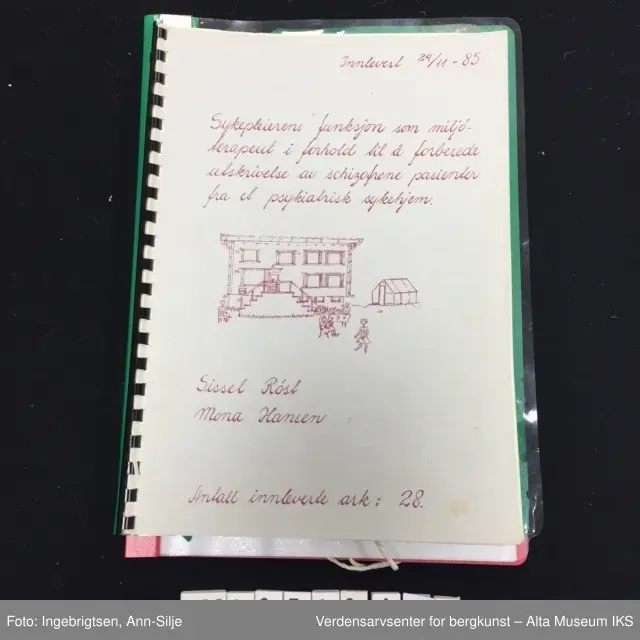 Innlevert 29/11 - 85
Sykepleierens funksjon som miljö-
terapeut i forhold til å forberede
utskrivelse av schizofrene pasienter
fra et psykiatrisk sykehjem.
Sissel Röst
Mona Hansen
Antall innleverte ark : 28.
Foto: Ingebrigtsen, Ann-Silje
Verdensarvsenter for bergkunst – Alta Museum IKS